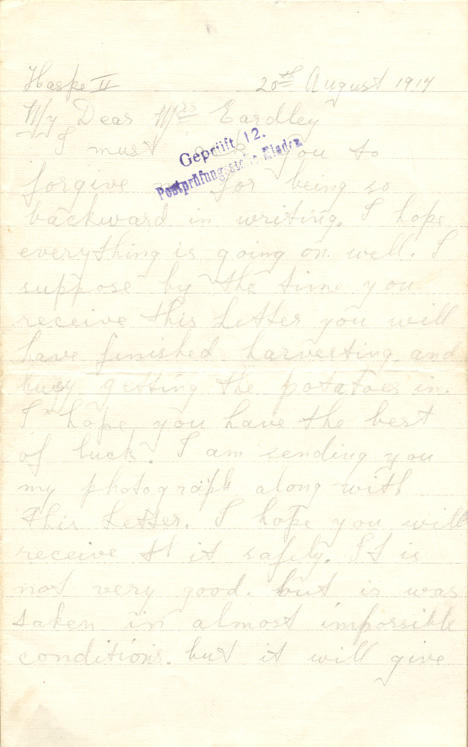 Haspe II 20th August 1917
My Dear Mrs Eardley
I must ask you to
Geprüft 12.
Postprüfungsstelle
forgive for being so
backward in writing. I hope
everything is going on well. I
suppose by the time you
receive this letter you will
have finished harvesting and
busy getting the potatoes in.
I hope you have the best
of luck. I am sending you
my photograph along with
this letter. I hope you will
receive it safely. It is
not very good. but is was
taken in almost impossible
conditions. but it will give